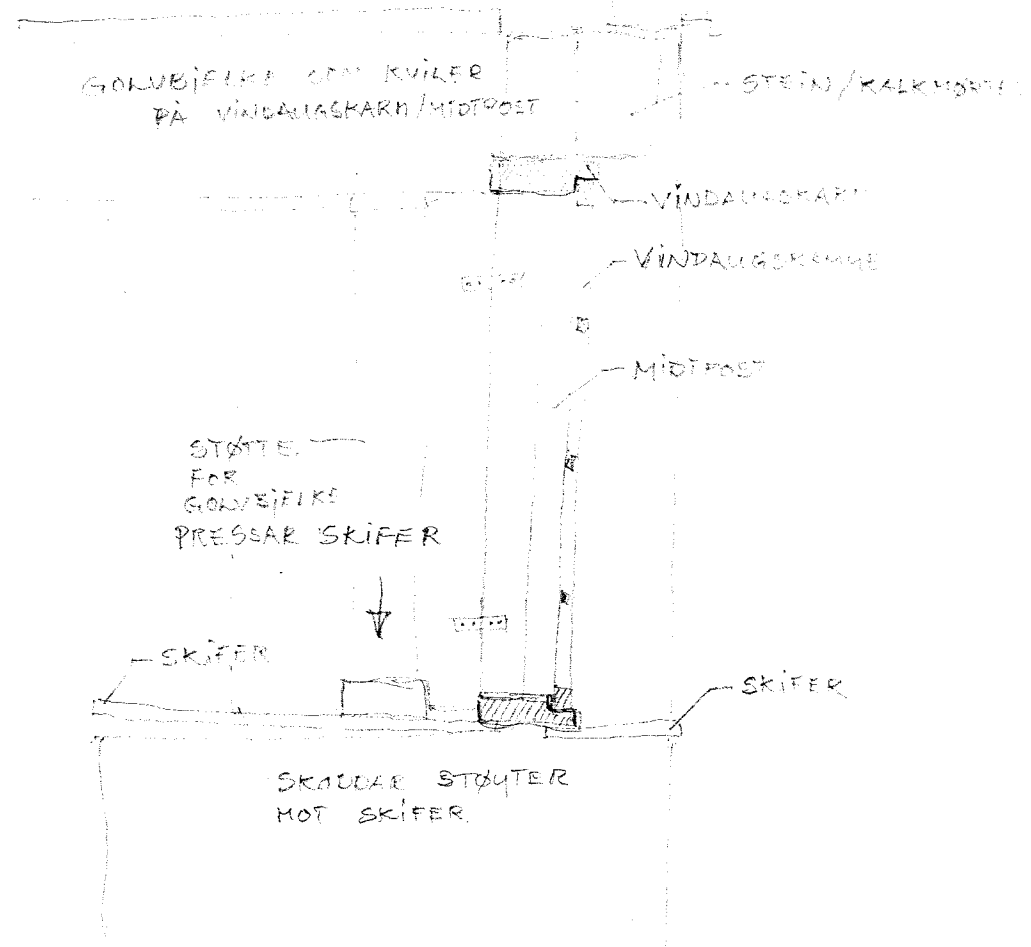 GOLVBJELKE SOM KVILER
PÅ VINDAUGSKARM/MIDTPOST
STEIN/KALKMØRTEL
VINDAUGSKARM
VINDAUGSRAMME
MIDTPOST
STØTTE
FOR
GOLVBJELKE
PRESSAR SKIFER
SKIFER
SKIFER
STØYTER
MOT SKIFER.